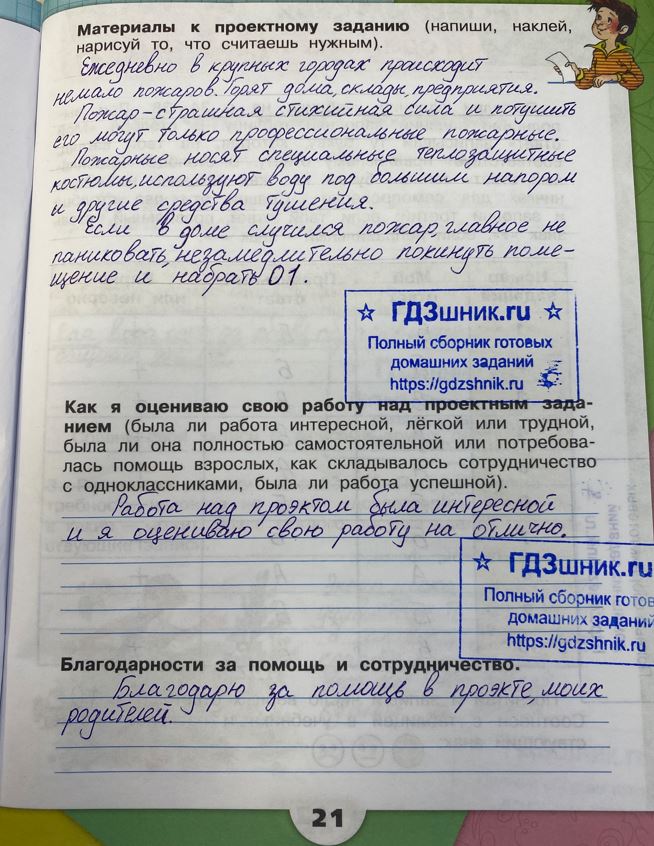 Материалы к проектному заданию (напиши, наклей,
нарисуй то, что считаешь нужным).
Ежедневно в крупных городах происходит
немало пожаров. Горят дома, склады, предприятия.
Пожар-страшная стихийная сила и потушить
его могут только профессиональные пожарные.
Пожарные носят специальные теплозащитные
костюмы, используют воду под большим напором
и другие средства тушения.
Если в доме случился пожар, главное не
паниковать, незамедлительно покинуть поме-
щение и набрать 01.
☆ ГДЗшник.ru ☆
Полный сборник готовых
домашних заданий
https://gdzshnik.ru
Как я оцениваю свою работу над проектным зада-
нием (была ли работа интересной, лёгкой или трудной,
была ли она полностью самостоятельной или потребова-
лась помощь взрослых, как складывалось сотрудничество
с одноклассниками, была ли работа успешной).
Работа над проэктом была интересной
и я оцениваю свою работу на отлично.
☆ ГДЗшник.ru
Полный сборник готов
домашних заданий
https://gdzshnik.ru
Благодарности за помощь и сотрудничество.
Благодарю за помощь в проэкте, моих
родителей.
21